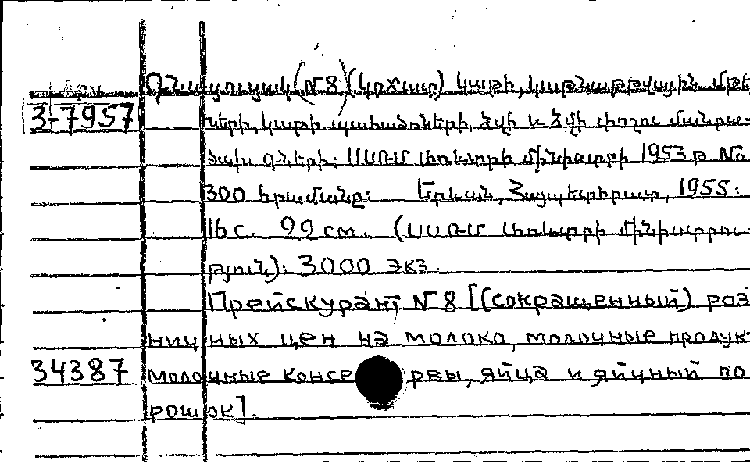 Գնացուցակ (N8) (կրճատ) կաթի, կաթնամթերքի, մթե
3-7957
ների, կաթի պահածոների, ձվի և ձվի փոշու մանրա-
ծախ գների: ՍՍՌՄ առևտրի մինիստրի 1953 թ. №
300 հրամանը: Երևան, Հայպետհրատ, 1955:
16 с. 22 см. (ՍՍՌՄ առևտրի մինիստրու-
թյուն): 3000 экз.
Прейскурант N 8 [(сокращенный) роз
ничных цен на молоко, молочные продук
34387 молочные консервы, яйца и яичный по
рошок].